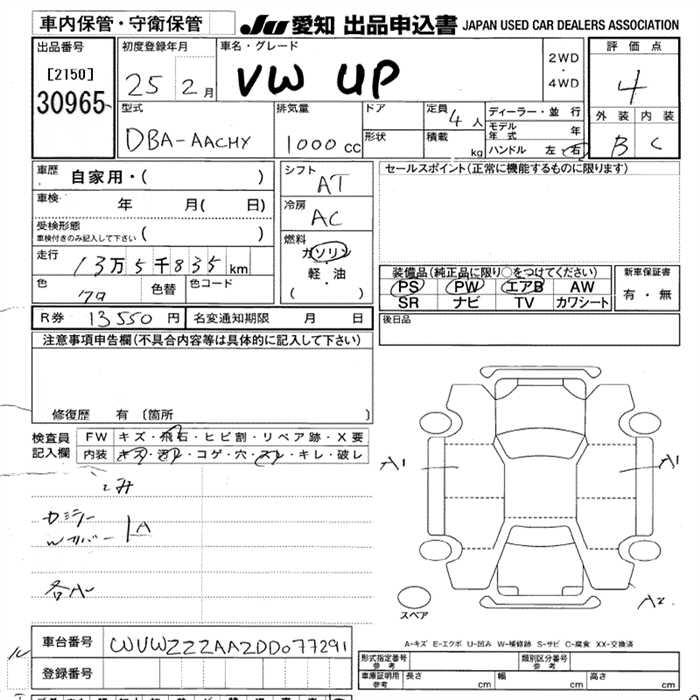 車内保管・守衛保管
JU 愛知 出品申込書 JAPAN USED CAR DEALERS ASSOCIATION
出品番号
[2150]
30965
初度登録年月
25 2月
車名・グレード
VW UP
2WD
・
4WD
評価点
4
外装 内装
B C
型式
DBA-AACHY
排気量
1000 cc
ドア
形状
定員 4 人
積載 kg
ディーラー・並行
モデル年式 年
ハンドル 左・右
車歴 自家用・( )
車検 年 月( 日)
受検形態
車検付きのみ記入して下さい ( )
走行 13万5千835 km
色
色替
色コード
シフト
AT
冷房
AC
燃料
ガソリン
・
軽・油
( )
セールスポイント(正常に機能するものに限ります)
装備品(純正品に限り○をつけてください)
PS PW エアB AW
SR ナビ TV カワシート
新車保証書
有・無
R券 13550 円
名変通知期限 月 日
後日品
注意事項申告欄(不具合内容等は具体的に記入して下さい)
修復歴 有 〔箇所 〕
検査員
記入欄
FW キズ・飛石・ヒビ割・リペア跡・X要
内装 キズ・汚レ・コゲ・穴・スレ・キレ・破レ
A
A1
A1
A2
スペア
A-キズ E-エクボ U-凹み W-補修跡 S-サビ C-腐食 XX-交換済
車台番号 WVWZZZAAZDD077291
登録番号
型式指定番号
参考
類別区分番号
参考
車庫証明用
参考
長さ cm
幅 cm
高さ cm